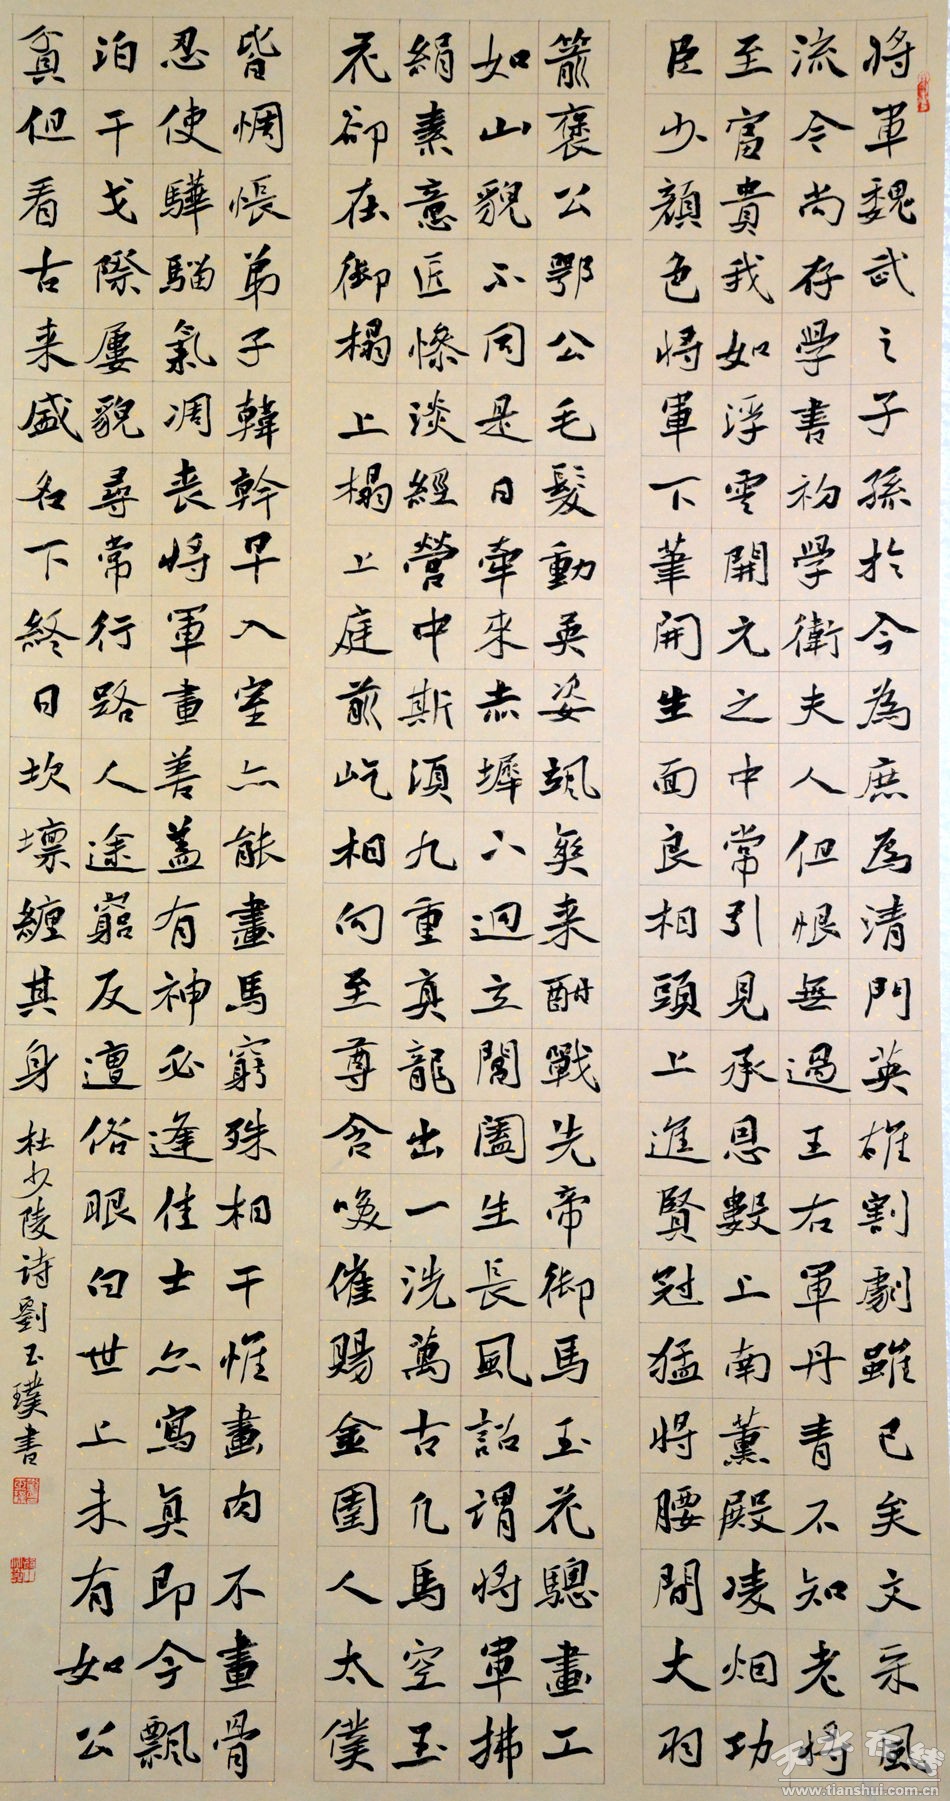 将軍魏武之子孫於今為庶為清門英雄割劇雖已矣文采風
流令尚存學書初學衛夫人但恨無過王右軍丹青不知老将
至富貴我如浮雲開元之中常引見承恩數上南薰殿凌烟功
臣少顔色将軍下筆開生面良相頭上進賢冠猛将腰間大羽
箭褒公鄂公毛髮動英姿颯爽来酣戰先帝御馬玉花驄畫工
如山貌不同是日牽來赤墀下迥立閶闔生長風詔謂将軍拂
絹素意匠慘淡經營中斯須九重真龍出一洗萬古凡馬空玉
花卻在御榻上榻上庭前屹相向至尊含咲催賜金圉人太僕
皆惆悵弟子韓幹早入室亦能畫馬窮殊相干惟畫肉不畫骨
忍使驊騮氣凋喪将軍畫善蓋有神必逢佳士亦寫真即今飄
泊干戈際屢貌尋常行路人途窮反遭俗眼白世上未有如公
貧但看古来盛名下終日坎壈纏其身 杜少陵诗劉玉璞書
天水在线
www.tianshui.com.cn